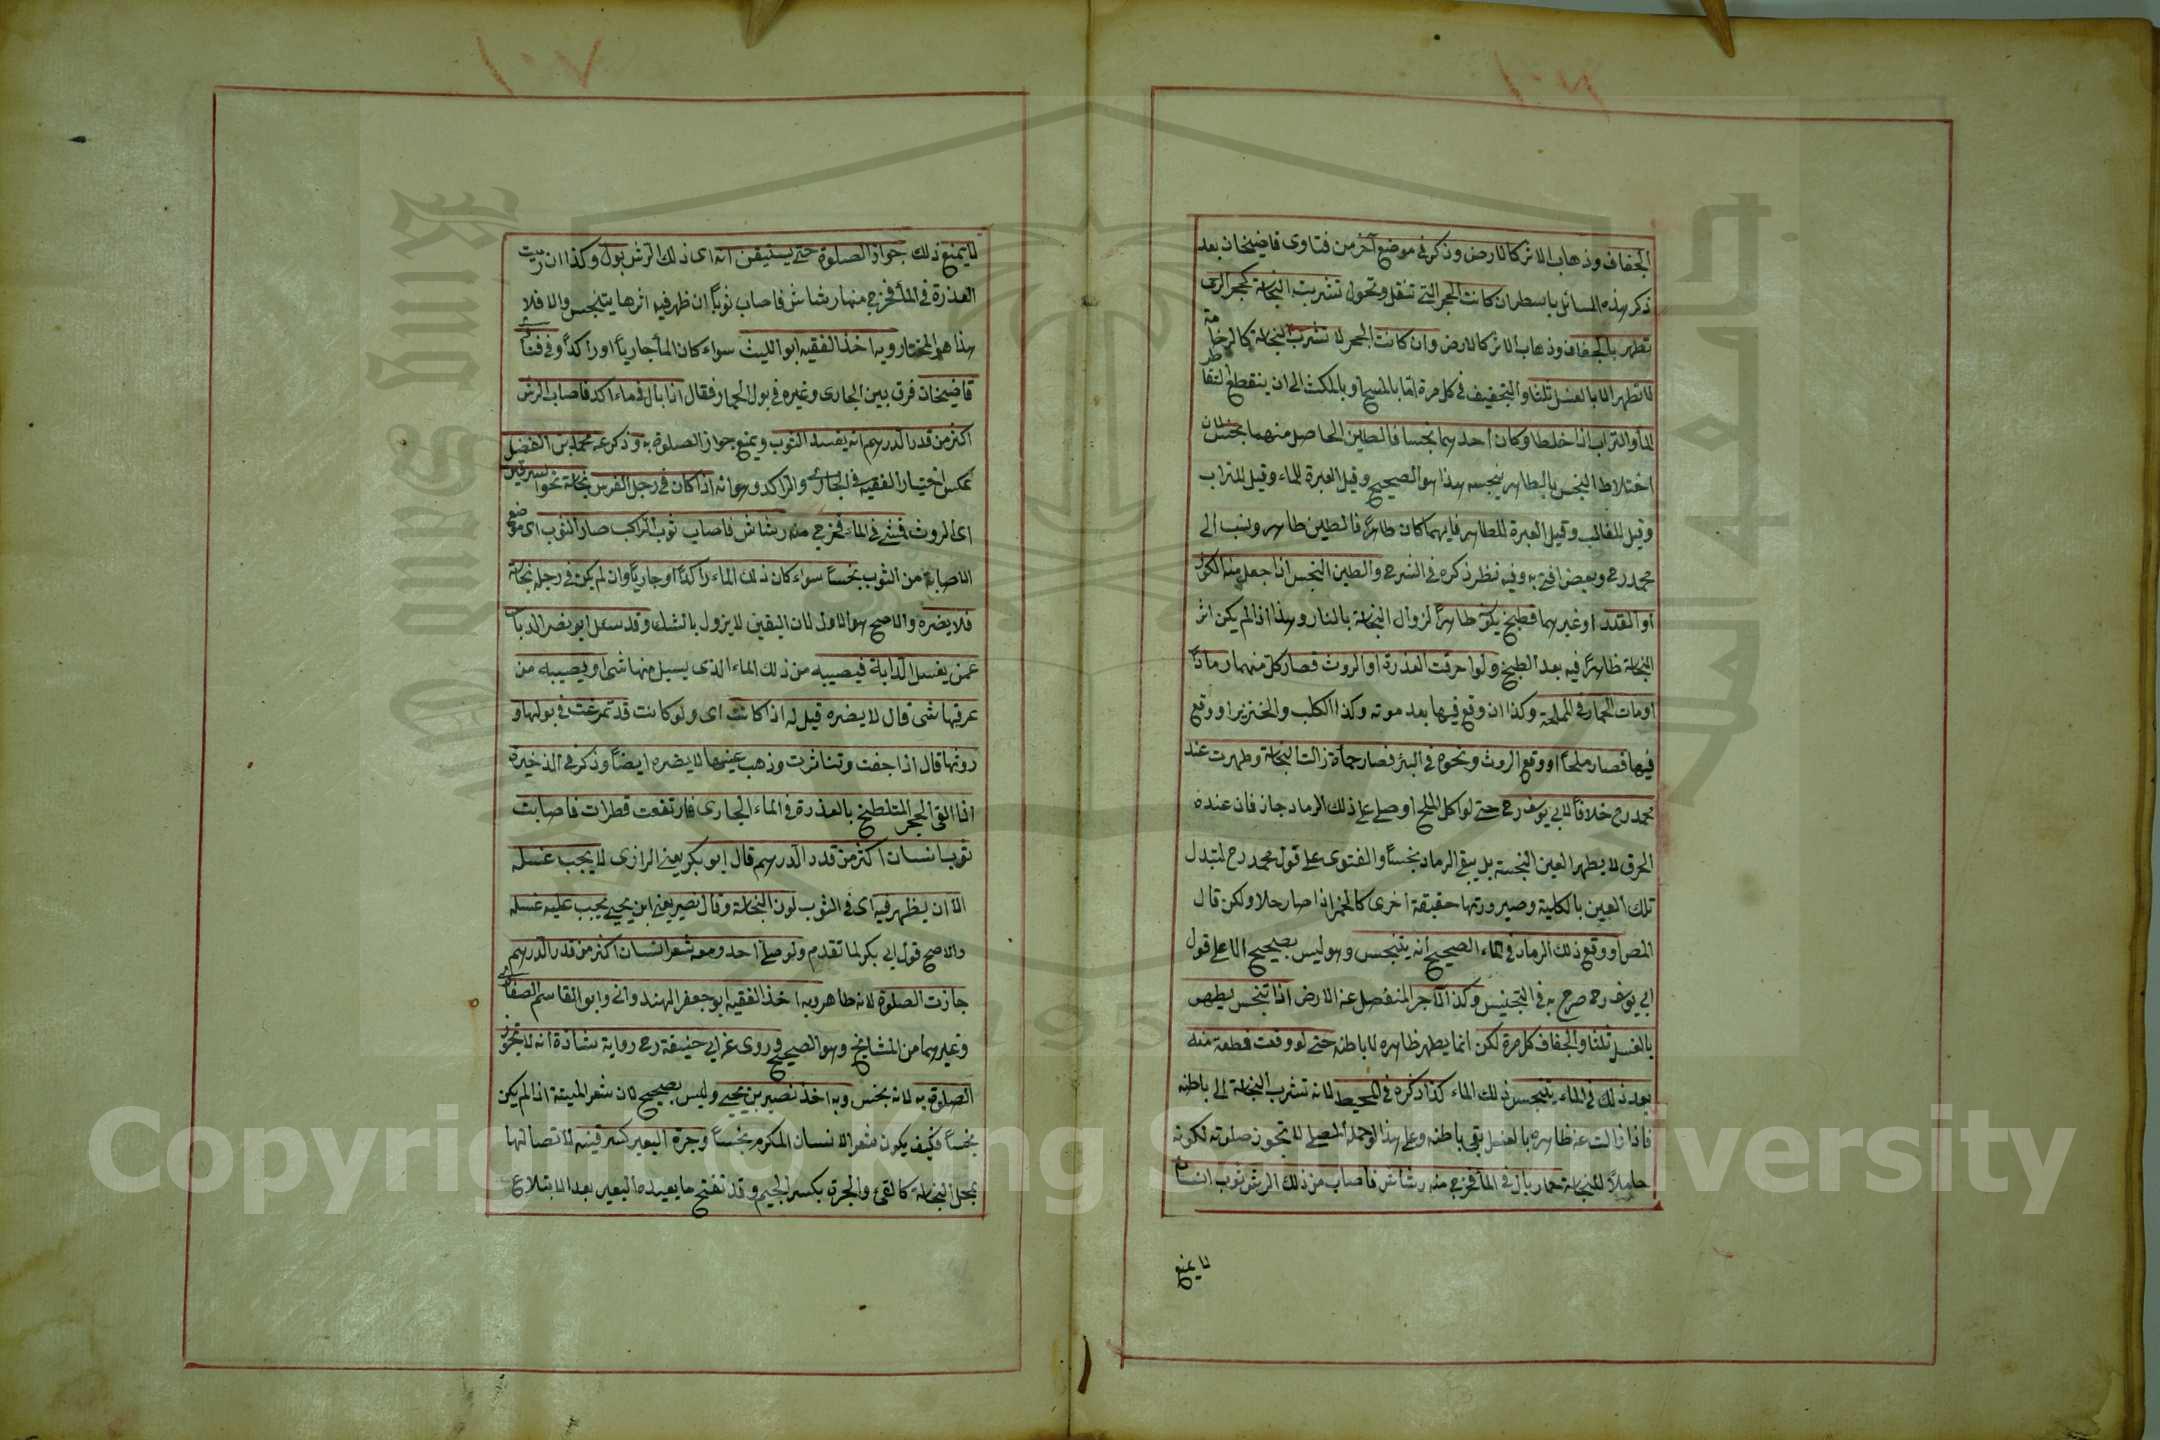 الجفاف وذهاب الاثر كالارض وذكر في موضع آخر من فتاوى قاضيخان بعد
ذكر هذه المسائل باسطر ان كانت الحجر التي تنقل وتحول تشربت النجاسة كحجر الرحى
تطهر بالجفاف وذهاب الاثر كالارض وان كانت الحجر لا تشرب النجاسة كالرخامة
لا تطهر الا بالغسل ثلثا والتجفيف في كل مرة اما بالمسح او بالمكث الى ان ينقطع التقاطر
الماء والتراب اذا خلطا وكان احدهما نجسا فالطين الحاصل منهما نجس لان
اختلاط النجس بالطاهر ينجسه هذا هو الصحيح وقيل العبرة للماء وقيل للتراب
وقيل للغالب وقيل العبرة للطاهر فايهما كان طاهرا فالطين طاهر ونسب الى
محمد رح وبعض افتى به وفيه نظر ذكره في الشرح والطين النجس اذا جعل منه الكوز
او القدر او غيرهما فطبخ يكون طاهرا لزوال النجاسة بالنار وهذا اذا لم يكن اثر
النجاسة ظاهرا فيه بعد الطبخ ولو احرقت العذرة او الروث فصار كل منهما رمادا
او مات الحمار في المملحة وكذا ان وقع فيها بعد موته وكذا الكلب والخنزير او وقع
فيها فصار ملحا او وقع الروث ونحوه في البئر فصار حمأة زالت النجاسة وطهرت عند
محمد رح خلافا لابي يوسف رح حتى لو اكل الملح او صلى على ذلك الرماد جاز فان عنده
الحرق لا يطهر العين النجسة بل يبقى الرماد نجسا والفتوى على قول محمد رح لتبدل
تلك العين بالكلية وصيرورتها حقيقة اخرى كالخمر اذا صار خلا ولكن قال
المص او وقع ذلك الرماد في الماء الصحيح انه يتنجس وهو ليس بصحيح الا على قول
ابي يوسف رح صرح به في التجنيس وكذا الآجر المنفصل عنه الارض اذا تنجس يطهر
بالغسل ثلثا والجفاف كل مرة لكن انما يطهر ظاهره لا باطنه حتى لو وقعت قطعة منه
بعد ذلك في الماء يتنجس ذلك الماء كذا ذكره في المحيط لانه تشرب النجاسة الى باطنه
فاذا زالت عنه ظاهره بالغسل بقي باطنه وعلى هذا لو حمله المصلي لا تجوز صلوته لكونه
حاملا للنجاسة حمار بال في الماء فخرج منه رشاش فاصاب من ذلك الرش ثوب انسان
لا يمنع
لا يمنع ذلك جواز الصلوة حتى يستيقن انه اى ذلك الرش بول وكذا ان رميت
العذرة في الماء فخرج منها رشاش فاصاب ثوبا ان ظهر فيه اثرها يتنجس والا فلا
هذا هو المختار وبه اخذ الفقيه ابو الليث سواء كان الماء جاريا او راكدا وفي فتاوى
قاضيخان فرق بين الجارى وغيره في بول الحمار فقال اذا بال في ماء راكد فاصاب الرش
اكثر من قدر الدرهم انه يفسد الثوب ويمنع جواز الصلوة به وذكر عن محمد بن الفضل
عكس اختيار الفقيه في الجارى والراكد وهو انه اذا كان في رجل الفرس نجاسة نحو السرقين
اى الروث فمشى في الماء فخرج منه رشاش فاصاب ثوب الراكب صار الثوب اى موضع
الاصابة من الثوب نجسا سواء كان ذلك الماء راكدا او جاريا وان لم يكن في رجله نجاسة
فلا يضره والاصح هو الاول لان اليقين لا يزول بالشك وقد سئل ابو نصر الدباس
عمن يغسل الدابة فيصيبه من ذلك الماء الذى يسيل منها شئ او يصيبه من
عرقها شئ قال لا يضره قيل له اذا كانت اى ولو كانت قد تمرغت في بولها و
روثها قال اذا جفت وتناثرت وذهب عينها لا يضره ايضا وذكر في الذخيرة
اذا القى الحجر المتلطخ بالعذرة في الماء الجارى فارتفعت قطرات فاصابت
ثوب انسان اكثر من قدر الدرهم قال ابو بكر يعنى الرازى لا يجب غسله
الا ان يظهر فيه اى في الثوب لون النجاسة وقال نصير يعنى ابن يحيى يجب عليه غسله
والاصح قول ابي بكر لما تقدم ولو صلى احد ومعه شعر انسان اكثر من قدر الدرهم
جازت الصلوة لانه طاهر وبه اخذ الفقيه ابو جعفر الهندوانى وابو القاسم الصفار
وغيرهما من المشايخ وهو الصحيح وروى عن ابي حنيفة رح رواية شاذة انه لا تجوز
الصلوة به لانه نجس وبه اخذ نصير بن يحيى وليس بصحيح لان شعر الميتة اذا لم يكن
نجسا فكيف يكون شعر الانسان المكرم نجسا وجرة البعير كسرقينه لاتصالها
بمحل النجاسة كالقئ والجرة بكسر الجيم وقد تفتح ما يعيده البعير بعد الابتلاع
Copyright © King Saud University